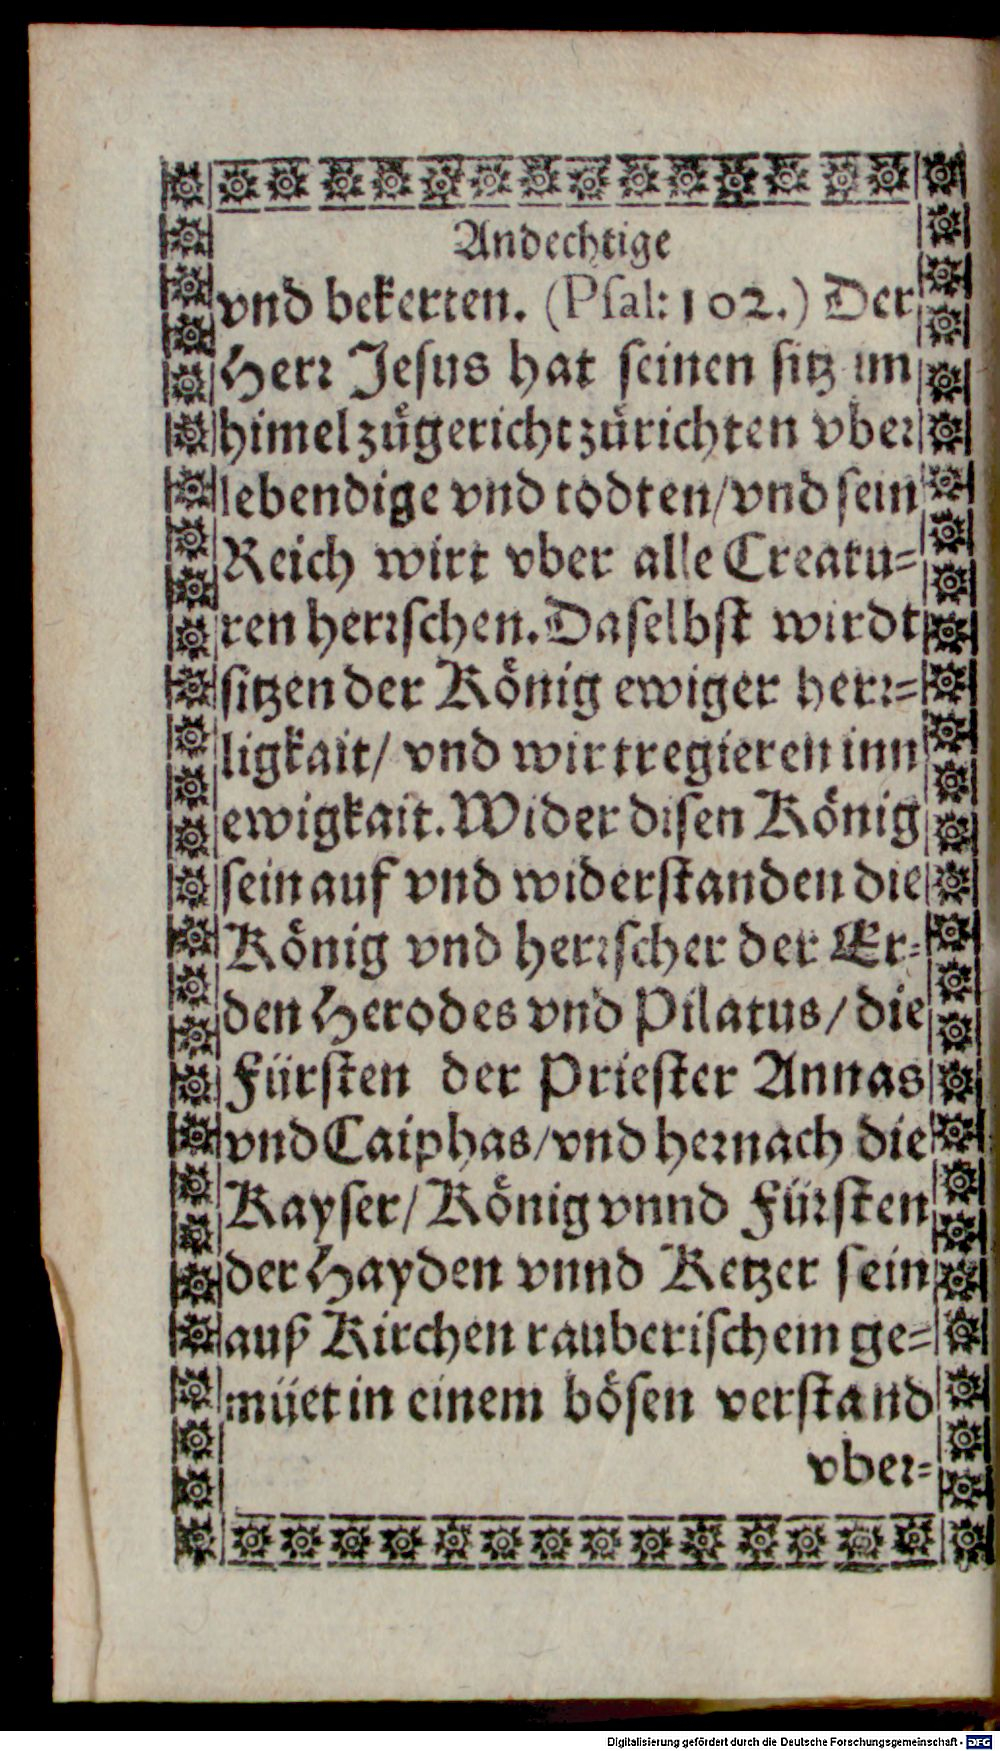 Andechtige
vnd bekerten. (Psal: 102.) Der
Herr Jesus hat seinen sitz im
himel zůgericht zůrichten vber
lebendige vnd todten/vnd sein
Reich wirt vber alle Creatu-
ren herrschen. Daselbst wirdt
sitzen der König ewiger herr-
ligkait/ vnd wirt regieren inn
ewigkait. Wider disen König
sein auf vnd widerstanden die
König vnd herrscher der Er-
den Herodes vnd Pilatus/ die
Fürsten der Priester Annas
vnd Caiphas/vnd hernach die
Kayser/ König vnnd Fürsten
der Hayden vnnd Ketzer sein
auß Kirchen rauberischem ge-
müet in einem bösen verstand
vber-
Digitalisierung gefördert durch die Deutsche Forschungsgemeinschaft - DFG